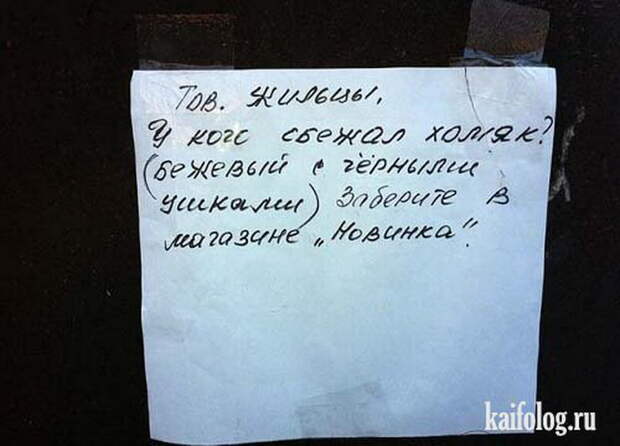 Тов. жильцы,
У кого сбежал хомяк?
(бежевый с чёрными
ушками) Заберите в
магазине „Новинка".
kaifolog.ru